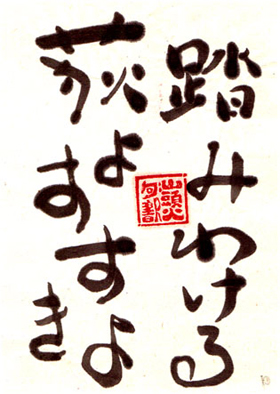 踏みわける
萩よすすきよ
山頭火